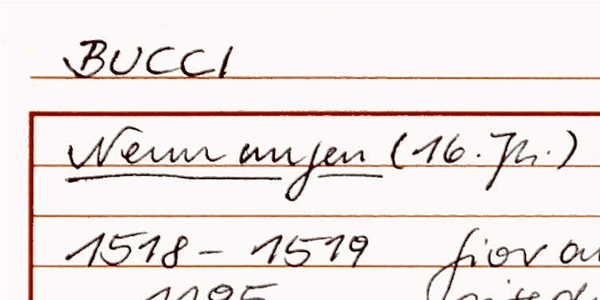 BUCCI
Nennungen (16. Jh.)
1518 - 1519
1195